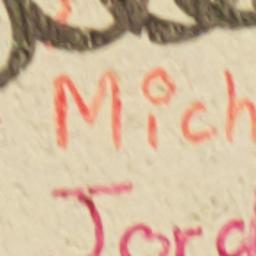 Mich
Jord